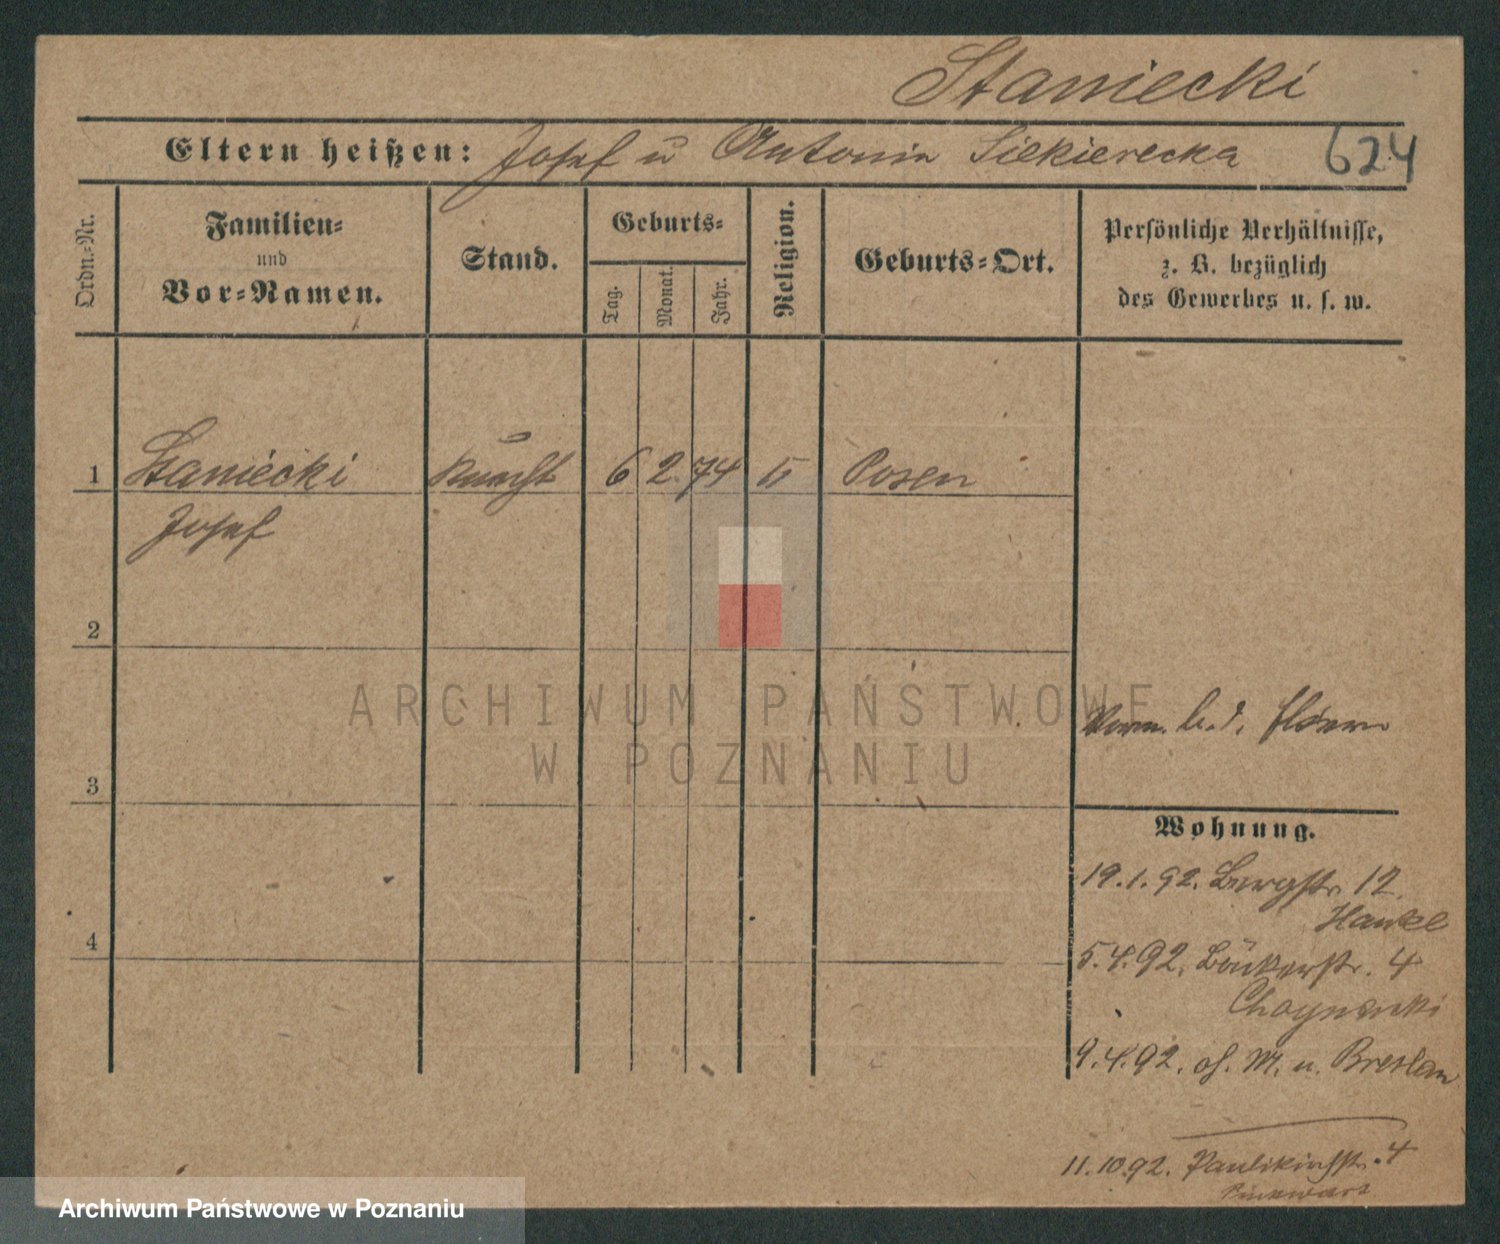 Staniecki
Eltern heißen: Josef u Antonin Siekierecka 624
Ordn.-Nr.
Familien-
und
Vor-Namen.
Stand.
Geburts-
Tag.
Monat.
Jahr.
Religion.
Geburts-Ort.
Persönliche Verhältnisse,
z. B. bezüglich
des Gewerbes u. s. w.
1 Staniecki Knecht 6 2. 74 Posen
Josef
2
ARCHIWUM PAŃSTWOWE
W POZNANIU
b. d. Eltern
3
Wohnung.
19.1.92. Bergstr. 12
Hanke
4
5.4.92. Bäckerstr. 4
9.4.92. M. n. Breslau
11.10.92. Paulikirchstr. 4
Archiwum Państwowe w Poznaniu